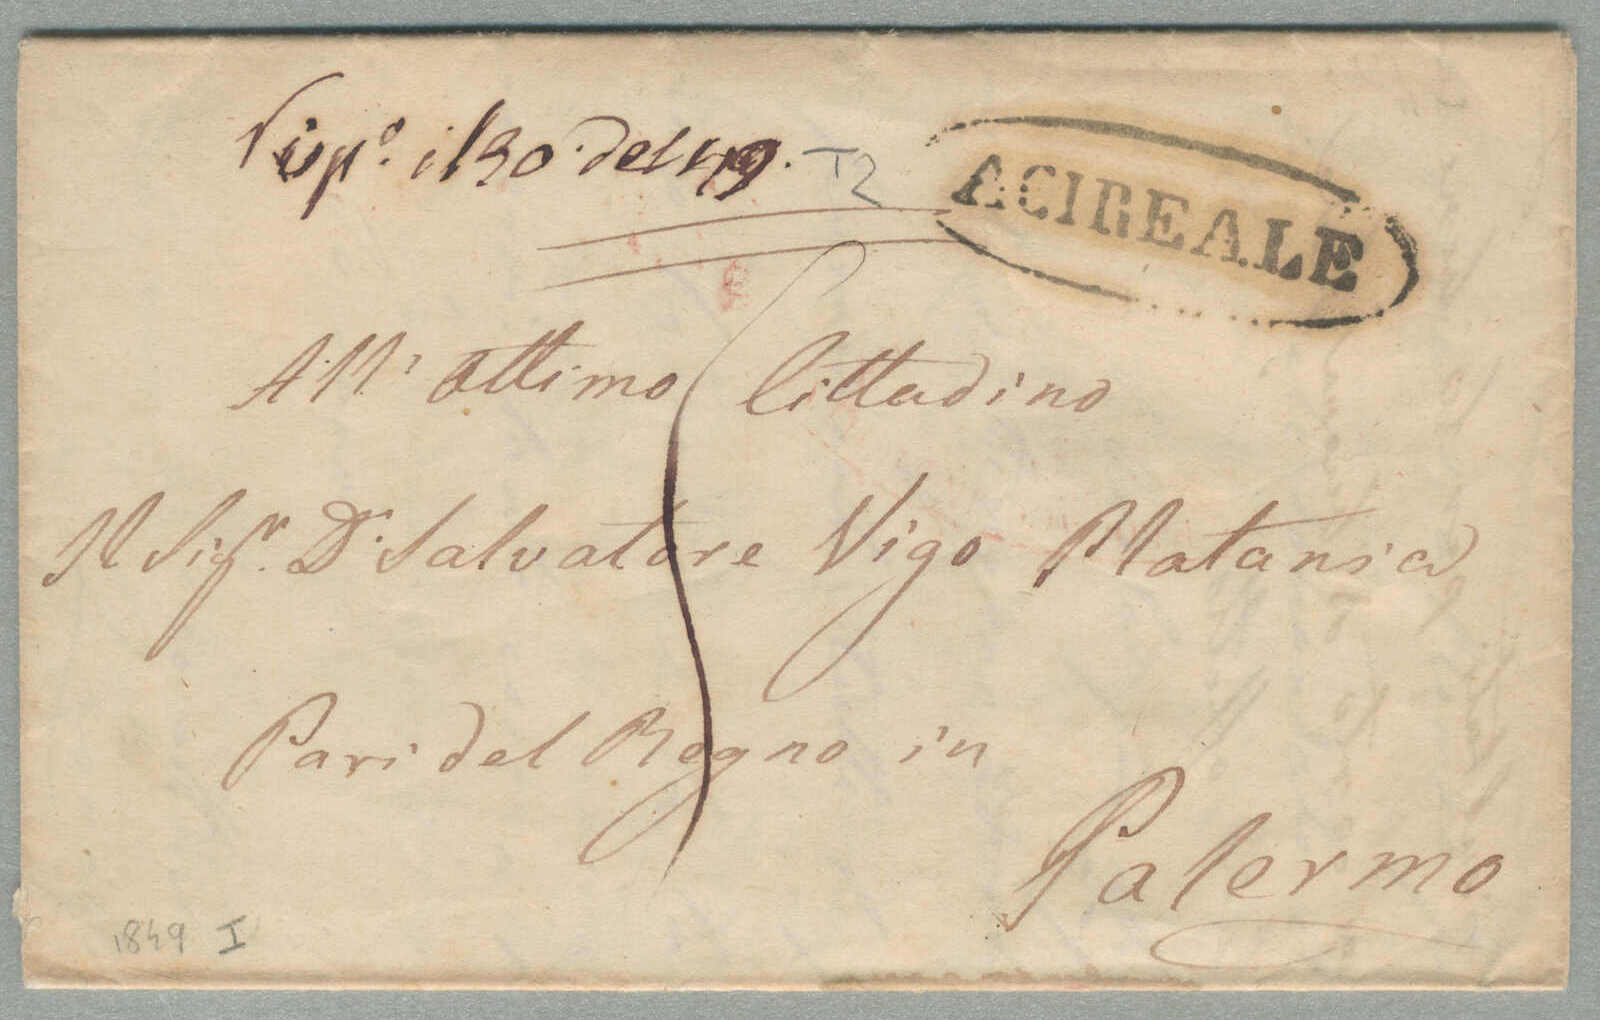 Risp.º il 30. del 49. T2
ACIREALE
All' ottimo Cittadino
Il Sigr. Dr. Salvatore Vigo Platania
Pari del Regno in
Palermo
1849 I